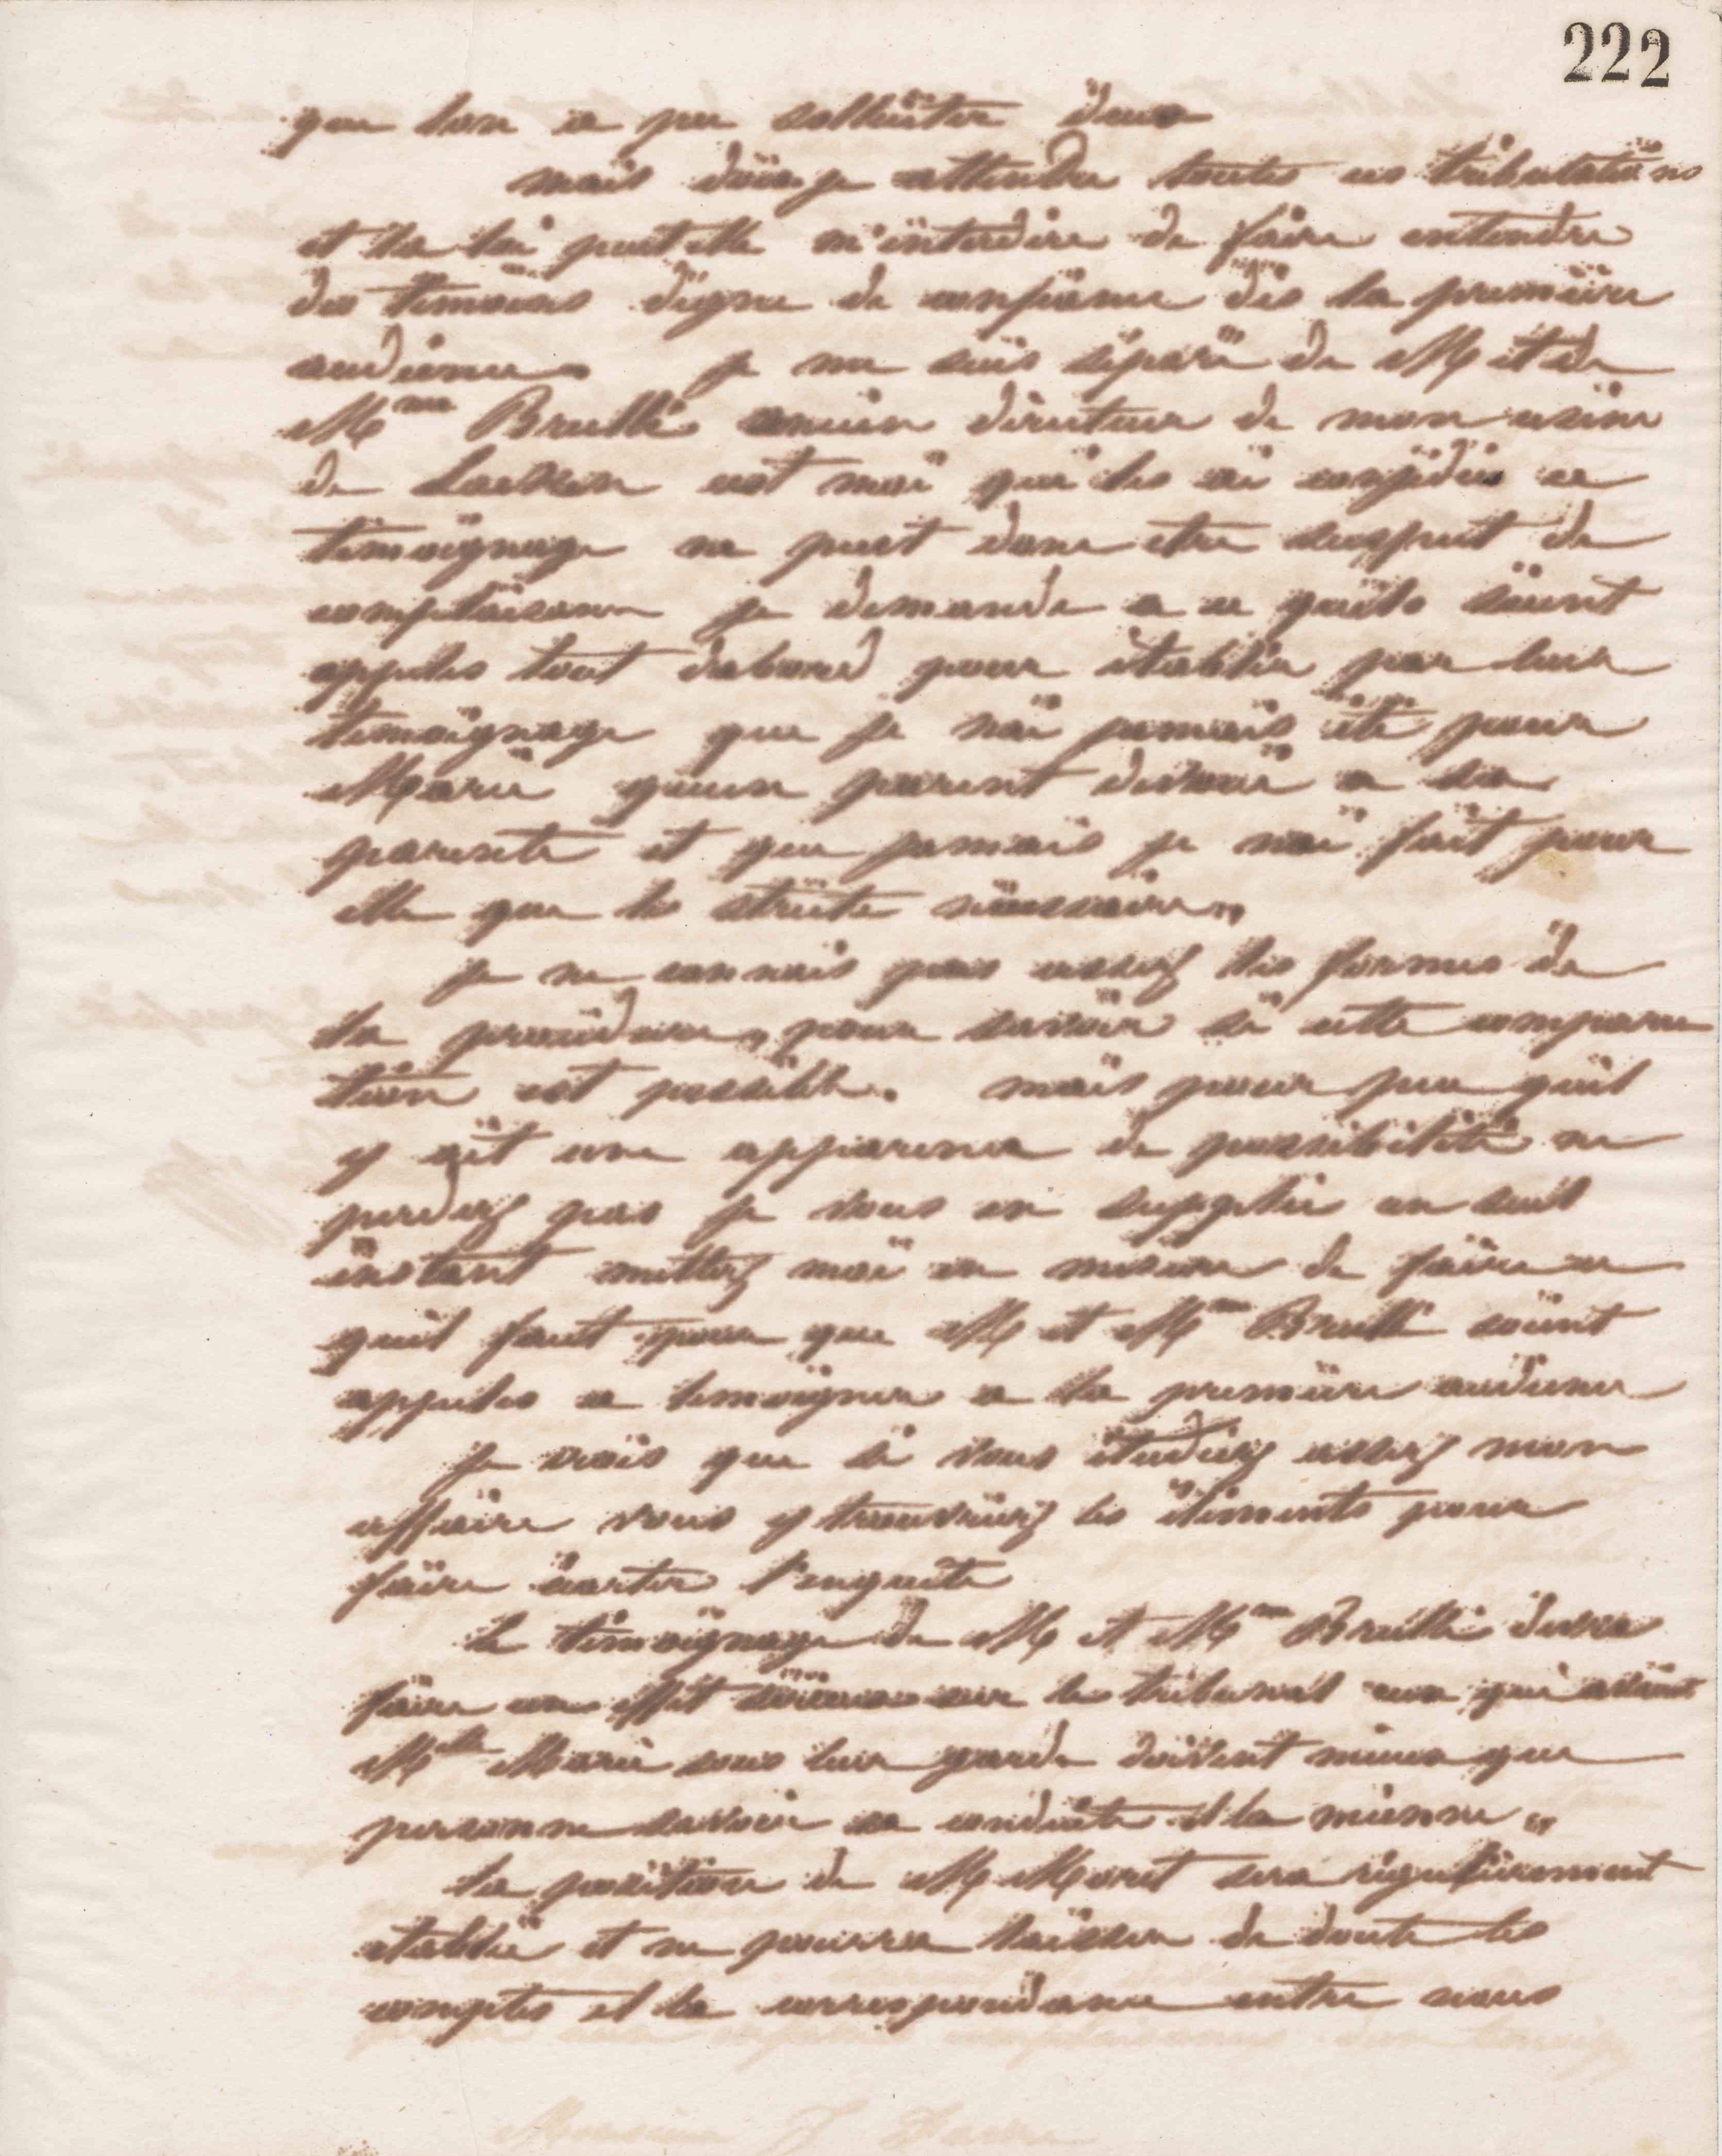 222
que lon a pu solliciter deux
mais doisje attendre toutes ces tribulations
et la loi peut elle m'interdire de faire entendre
des témoins digne de confiance dès la première
audience je me suis séparé de M et de
Mme Brullé ancien directeur de mon usine
de Laeken cest moi qui les ai congédiés ce
témoignage ne peut donc etre suspect de
complaisance je demande a ce quils soient
appelés tout dabord pour établir par leur
témoignage que je nai jamais été pour
Marie quun parent dévoué a sa
parente et que jamais je nai fait pour
elle que le stricte nécessaire,
je ne connais pas assez les formes de
la procédure, pour savoir si cette comparu
tion est possible. mais pour peu quil
y ait une apparence de possibilité ne
perdez pas je vous en supplie un seul
instant mettez moi en mesure de faire ce
quil faut pour que M et Mme Brullé soient
appelés a temoigner a la première audience
je crois que si vous étudiez assez mon
affaire vous y trouveriez les éléments pour
faire écarter l'enquête
le témoignage de M et Mme Brullé devra
faire un effet sérieux sur le tribunal ceux qui avaient
Mlle Marie sous leur garde doivent mieux que
personne savoir sa conduite et la mienne,,
la position de M Moret sera régulièrement
établie et ne pourra laisser de doute les
comptes et la correspondance entre nous